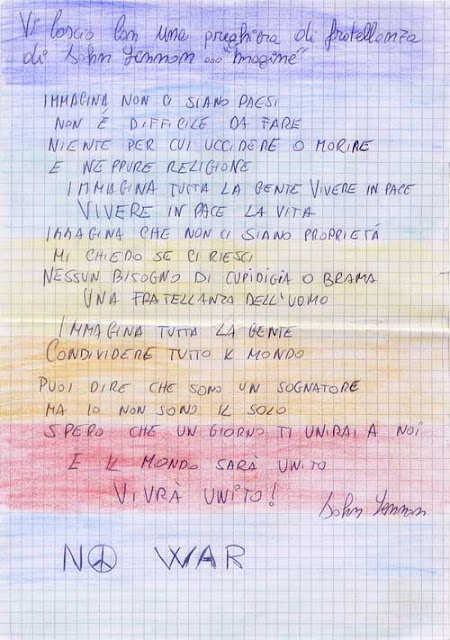 Vi lascio con una preghiera di fratellanza
di John Lennon "Imagine"
IMMAGINA NON CI SIANO PAESI
NON È DIFFICILE DA FARE
NIENTE PER CUI UCCIDERE O MORIRE
E NEPPURE RELIGIONE
IMMAGINA TUTTA LA GENTE VIVERE IN PACE
VIVERE IN PACE LA VITA
IMMAGINA CHE NON CI SIANO PROPRIETÁ
MI CHIEDO SE CI RIESCI
NESSUN BISOGNO DI CUPIDIGIA O BRAMA
UNA FRATELLANZA DELL'UOMO
IMMAGINA TUTTA LA GENTE
CONDIVIDERE TUTTO IL MONDO
PUOI DIRE CHE SONO UN SOGNATORE
MA IO NON SONO IL SOLO
SPERO CHE UN GIORNO TI UNIRAI A NOI
E IL MONDO SARÀ UNITO
VIVRÀ UNITO!
John Lennon
NO WAR